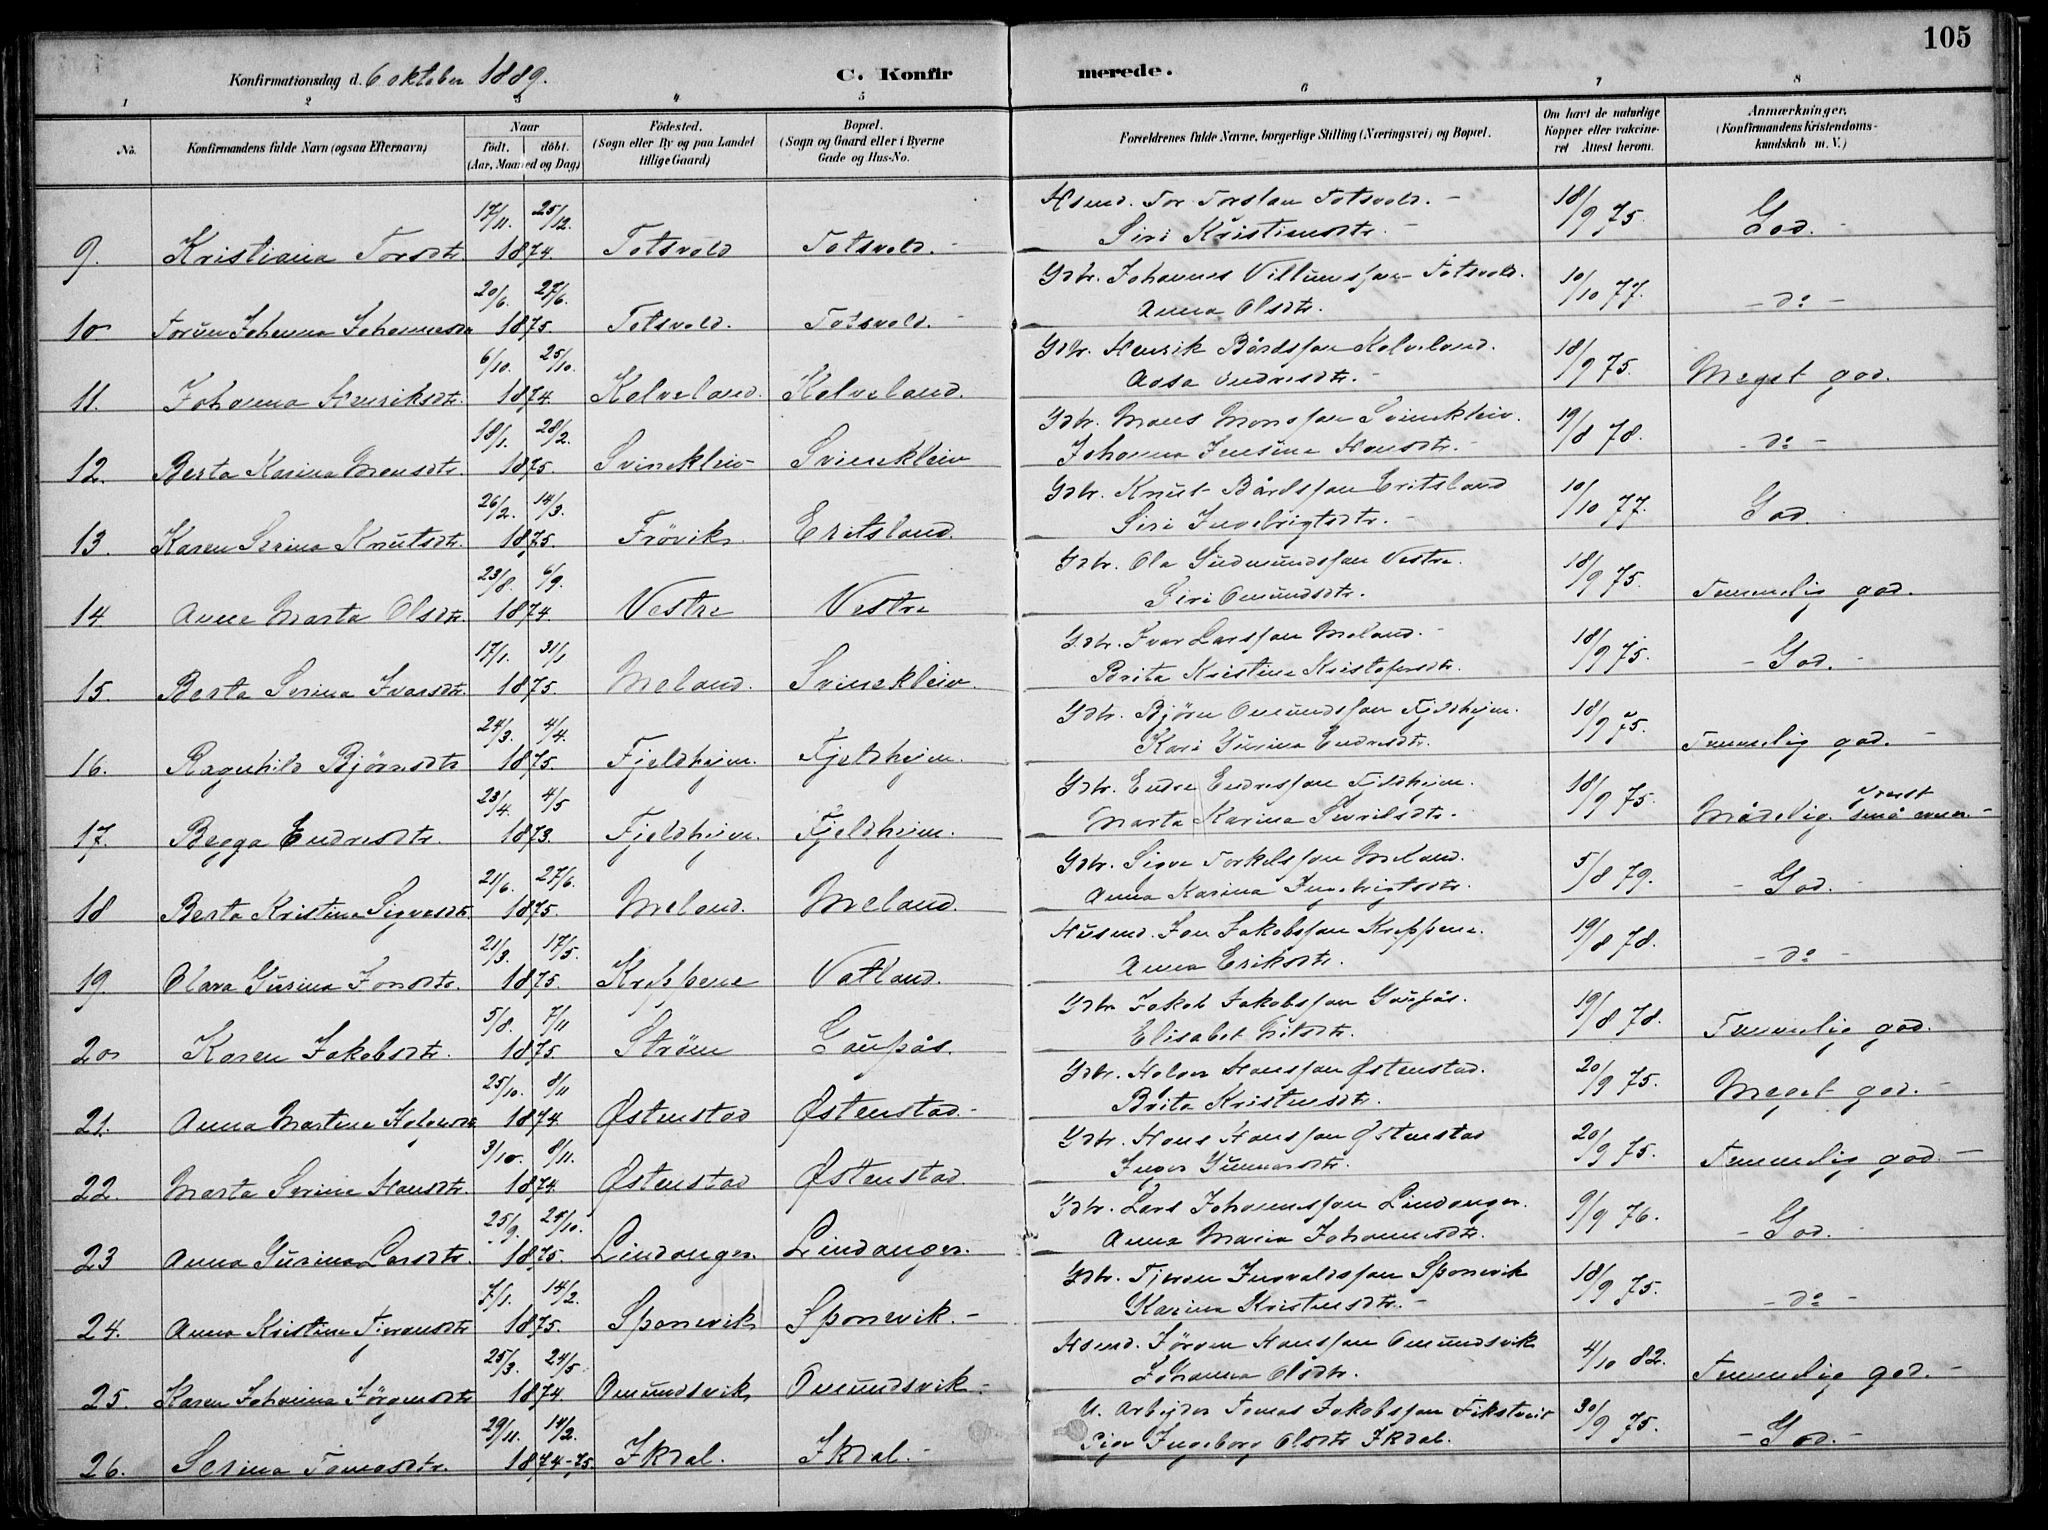 105
Konfirmationsdag d. 6 oktober 1889.
C. Konfirmerede.
1 2 3 4 5 6 7 8
No.
Konfirmandens fulde Navn (ogsaa Efternavn)
Naar
født. døbt.
(Aar, Maaned og Dag)
Fødested.
(Sogn eller By og paa Landet tillige Gaard)
Bopæl.
(Sogn og Gaard eller i Byerne Gade og Hus-No.
Forældrenes fulde Navne, borgerlige Stilling (Næringsvei) og Bopæl.
Om havt de naturlige Kopper eller vakcineret Attest herom.
Anmærkninger.
(Konfirmandens Kristendomskundskab m. V.)
9. Kristiana Torsdtr. 17/11. 25/12. 1874. Totsvold Totsvold. - Hsmd. Tor Torslan Totsvold. - Siri Kristiansdtr. - 18/9 75. God. -
10 Torun Johanna Johannesdtr 20/6. 27/6. 1875. Totsvold. Totsvold. - Gdbr. Johannes Villumssøn Totsvold. Anna Olsdtr. 10/10 77. - do -
11. Johanna Henriksdtr. 6/10. 25/10. 1874. Kolveland. Kolveland. Gdbr. Henrik Bårdssøn Kolveland. Aasa Endresdtr. - 18/9 75. Meget god.
12. Berta Karina Monsdtr. 18/1. 28/2. 1875. Svinekleiv Svinekleiv Gdbr. Mons Monssøn Svinekleiv. Johanna Jensine Hansdtr. - 19/8 78. - do -
13. Karen Serina Knutsdtr. 26/2. 14/3. 1875. Frövik. Eritsland. Gdbr. Knut Bårdssøn Eritsland Siri Ingebrigtsdtr. - 10/10 77. God.
14. Anne Marta Olsdtr. 23/8. 6/9. 1874. Vestre Vestre Gdbr. Ola Gudmundssøn Vestre. Siri Omundsdtr. 18/9 75. Temmelig god.
15. Berta Serina Ivarsdtr. 17/1. 31/1 1875. Meland. Svinekleiv. Gdbr. Ivar Larssøn Meland. - Brita Kristine Kristofersdtr. 18/9 75. - God. -
16. Ragnhild Bjørnsdtr 24/3. 4/4. 1875. Fjeldhejm. Fjeldhejm. Gdbr. Bjørn Omundssøn Fjeldhejm. Kari Gurina Endresdtr. 18/9 75. Temmelig god. -
17. Begga Endresdtr. 23/4. 4/5 1873. Fjeldhejm. Fjeldhejm. Gdbr. Endre Endressøn Fjeldhejm. Marta Karina Sivrilsdtr. - 18/9 75. Mådelig. yderst små evner -
18 Berta Kristine Sigvesdtr. 21/6. 27/6. 1875. Meland. Meland. Gdbr. Sigve Torkelssøn Meland. Anna Karina Ingebrigtsdtr. 5/8 79. - God. -
19. Olava Gurina Jonsdtr. 21/3. 17/5. 1875. Kreppene Vatland. Husmd. Jon Jakobssøn Kreppene. Anna Eriksdtr. 19/8 78. - do -
20 Karen Jakobsdtr. 5/8. 7/11 1875. Strøm Gaupås. Gdbr Jakob Jakobssøn Gaupås. Elisabet Nilsdtr. 19/8 78. Temmelig god.
21. Anna Martine Holversdtr 25/10. 8/11 1874. Østenstad Østenstad. Gdbr. Holver Hanssøn Østenstad. Brita Kristensdtr. 20/9 75. Meget god. -
22. Marta Serine Hansdtr. 3/10. 8/11. 1874. Østenstad Østenstad Gdbr. Hans Hanssøn Østenstad Inger Gunnarsdtr. 20/9 75. Temmelig god. -
23 Anna Gurina Larsdtr. 25/9. 24/10. 1875. Lindanger. Lindanger. Gdbr. Lars Johannessøn Lindanger. Anna Maria Johannesdtr. 9/9 76. - God. -
24. Anna Kristine Tjeransdtr 7/1. 14/2. 1875. Sponevik Sponevik. - Gdbr. Tjeran Ingvaldssøn Sponevik Karina Kristensdtr. - 18/9 75. - do -
25. Karen Johanna Jørgensdtr 25/3. 24/5. 1874. Omundsvik Omundsvik. Hsmd. Jørgen Hanssøn Omundsvik Johanna Olsdtr. 4/10 82. Temmelig god. -
26. Serina Tomasdtr. 29/11. 14/2. 1874-75. Ikdal. Ikdal. - U. Arbejder Tomas Jakobssøn Fikstveit Pige Ingeborg Olsdtr Ikdal. 30/9 75. - God. -